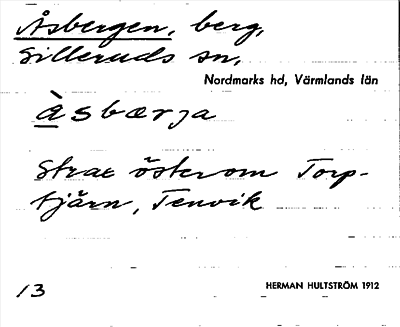 Åsbergen, berg,
Silleruds sn,
Nordmarks hd, Värmlands län
åsbærja
Strax öster om Torp-
tjärn, Tenvik
13
HERMAN HULTSTRÖM 1912